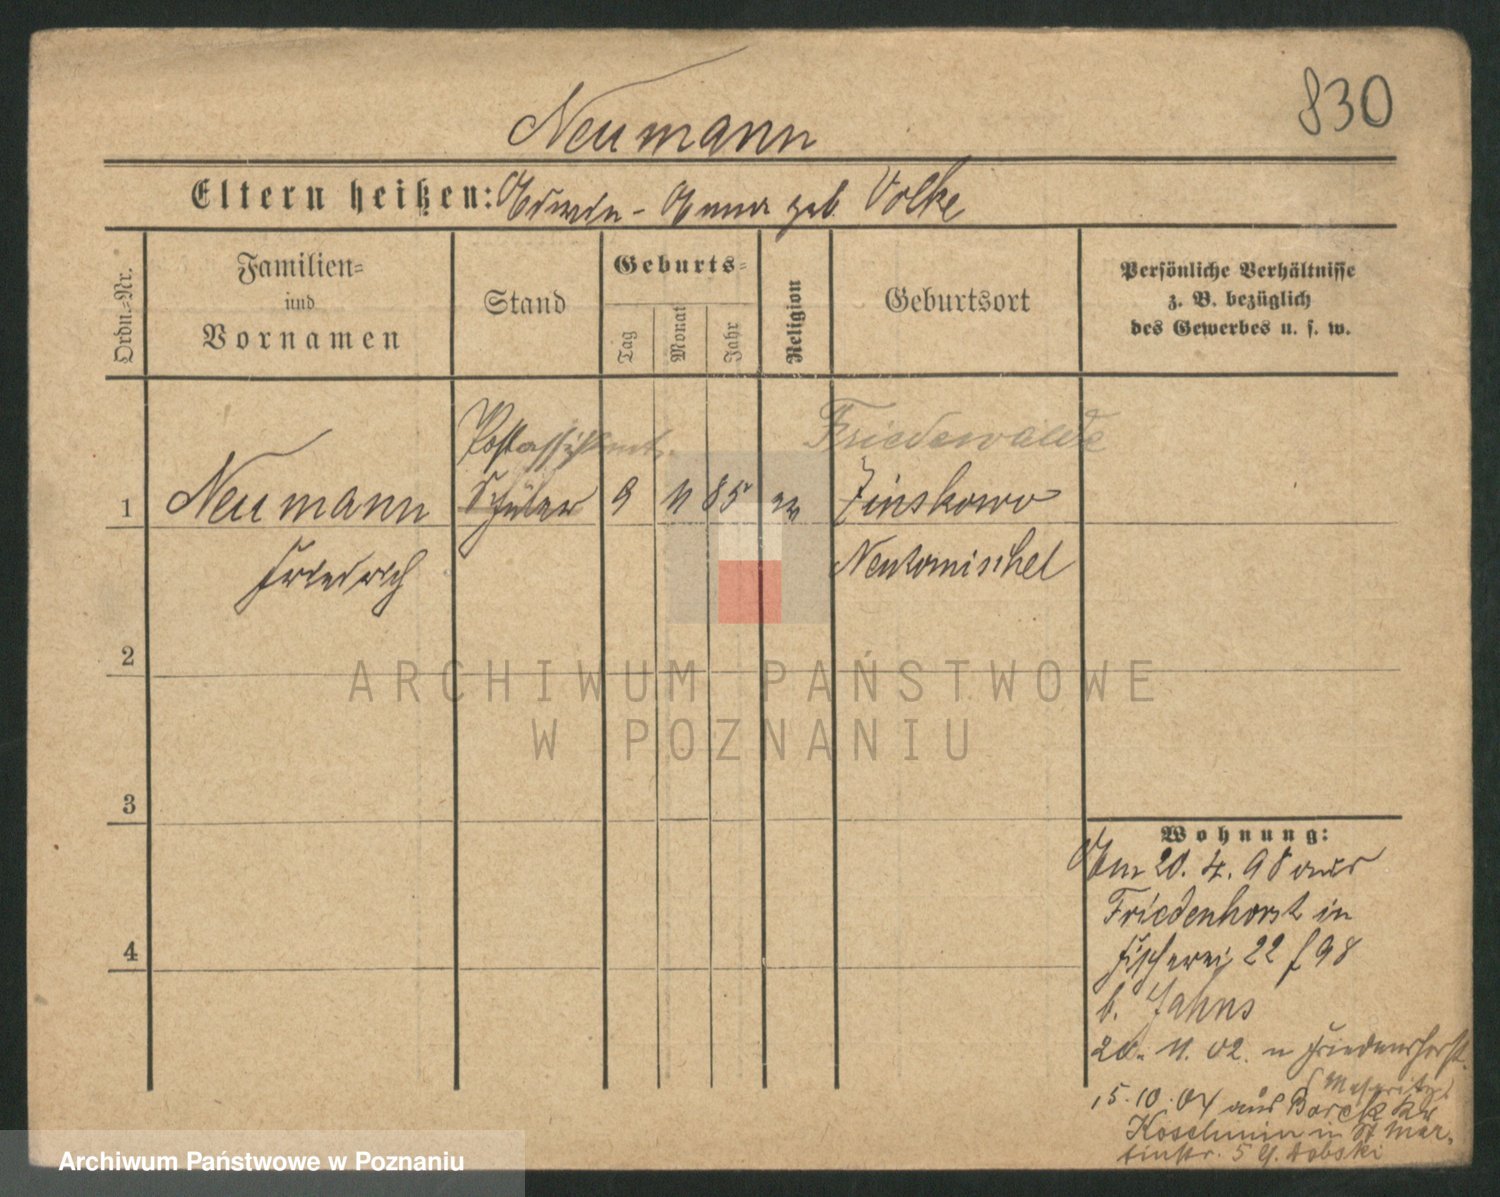 830
Neumann
Eltern heißen: Edwin - Anna geb. Volke
Ordn.=Nr.
Familien=
und
Vornamen
Stand
Geburts=
Tag
Monat
Jahr
Religion
Geburtsort
Persönliche Verhältnisse
z. B. bezüglich
des Gewerbes u. s. w.
Postassistent
Friedewalde
1 Neumann Schüler 9 11 85 ev Zinskowo
Friedrich Neutomischel
2
3
4
Wohnung:
Am 20. 4. 98 aus
Friedenhorst in
Fischerei 22 f 98
b. Jahns
20. 11. 02. n Friedenshorst
Meseritz
15. 10. 04 aus Borek Kr
Koschmin in St Mar-
tinstr. 5 b. Dobski
ARCHIWUM PAŃSTWOWE
W POZNANIU
Archiwum Państwowe w Poznaniu